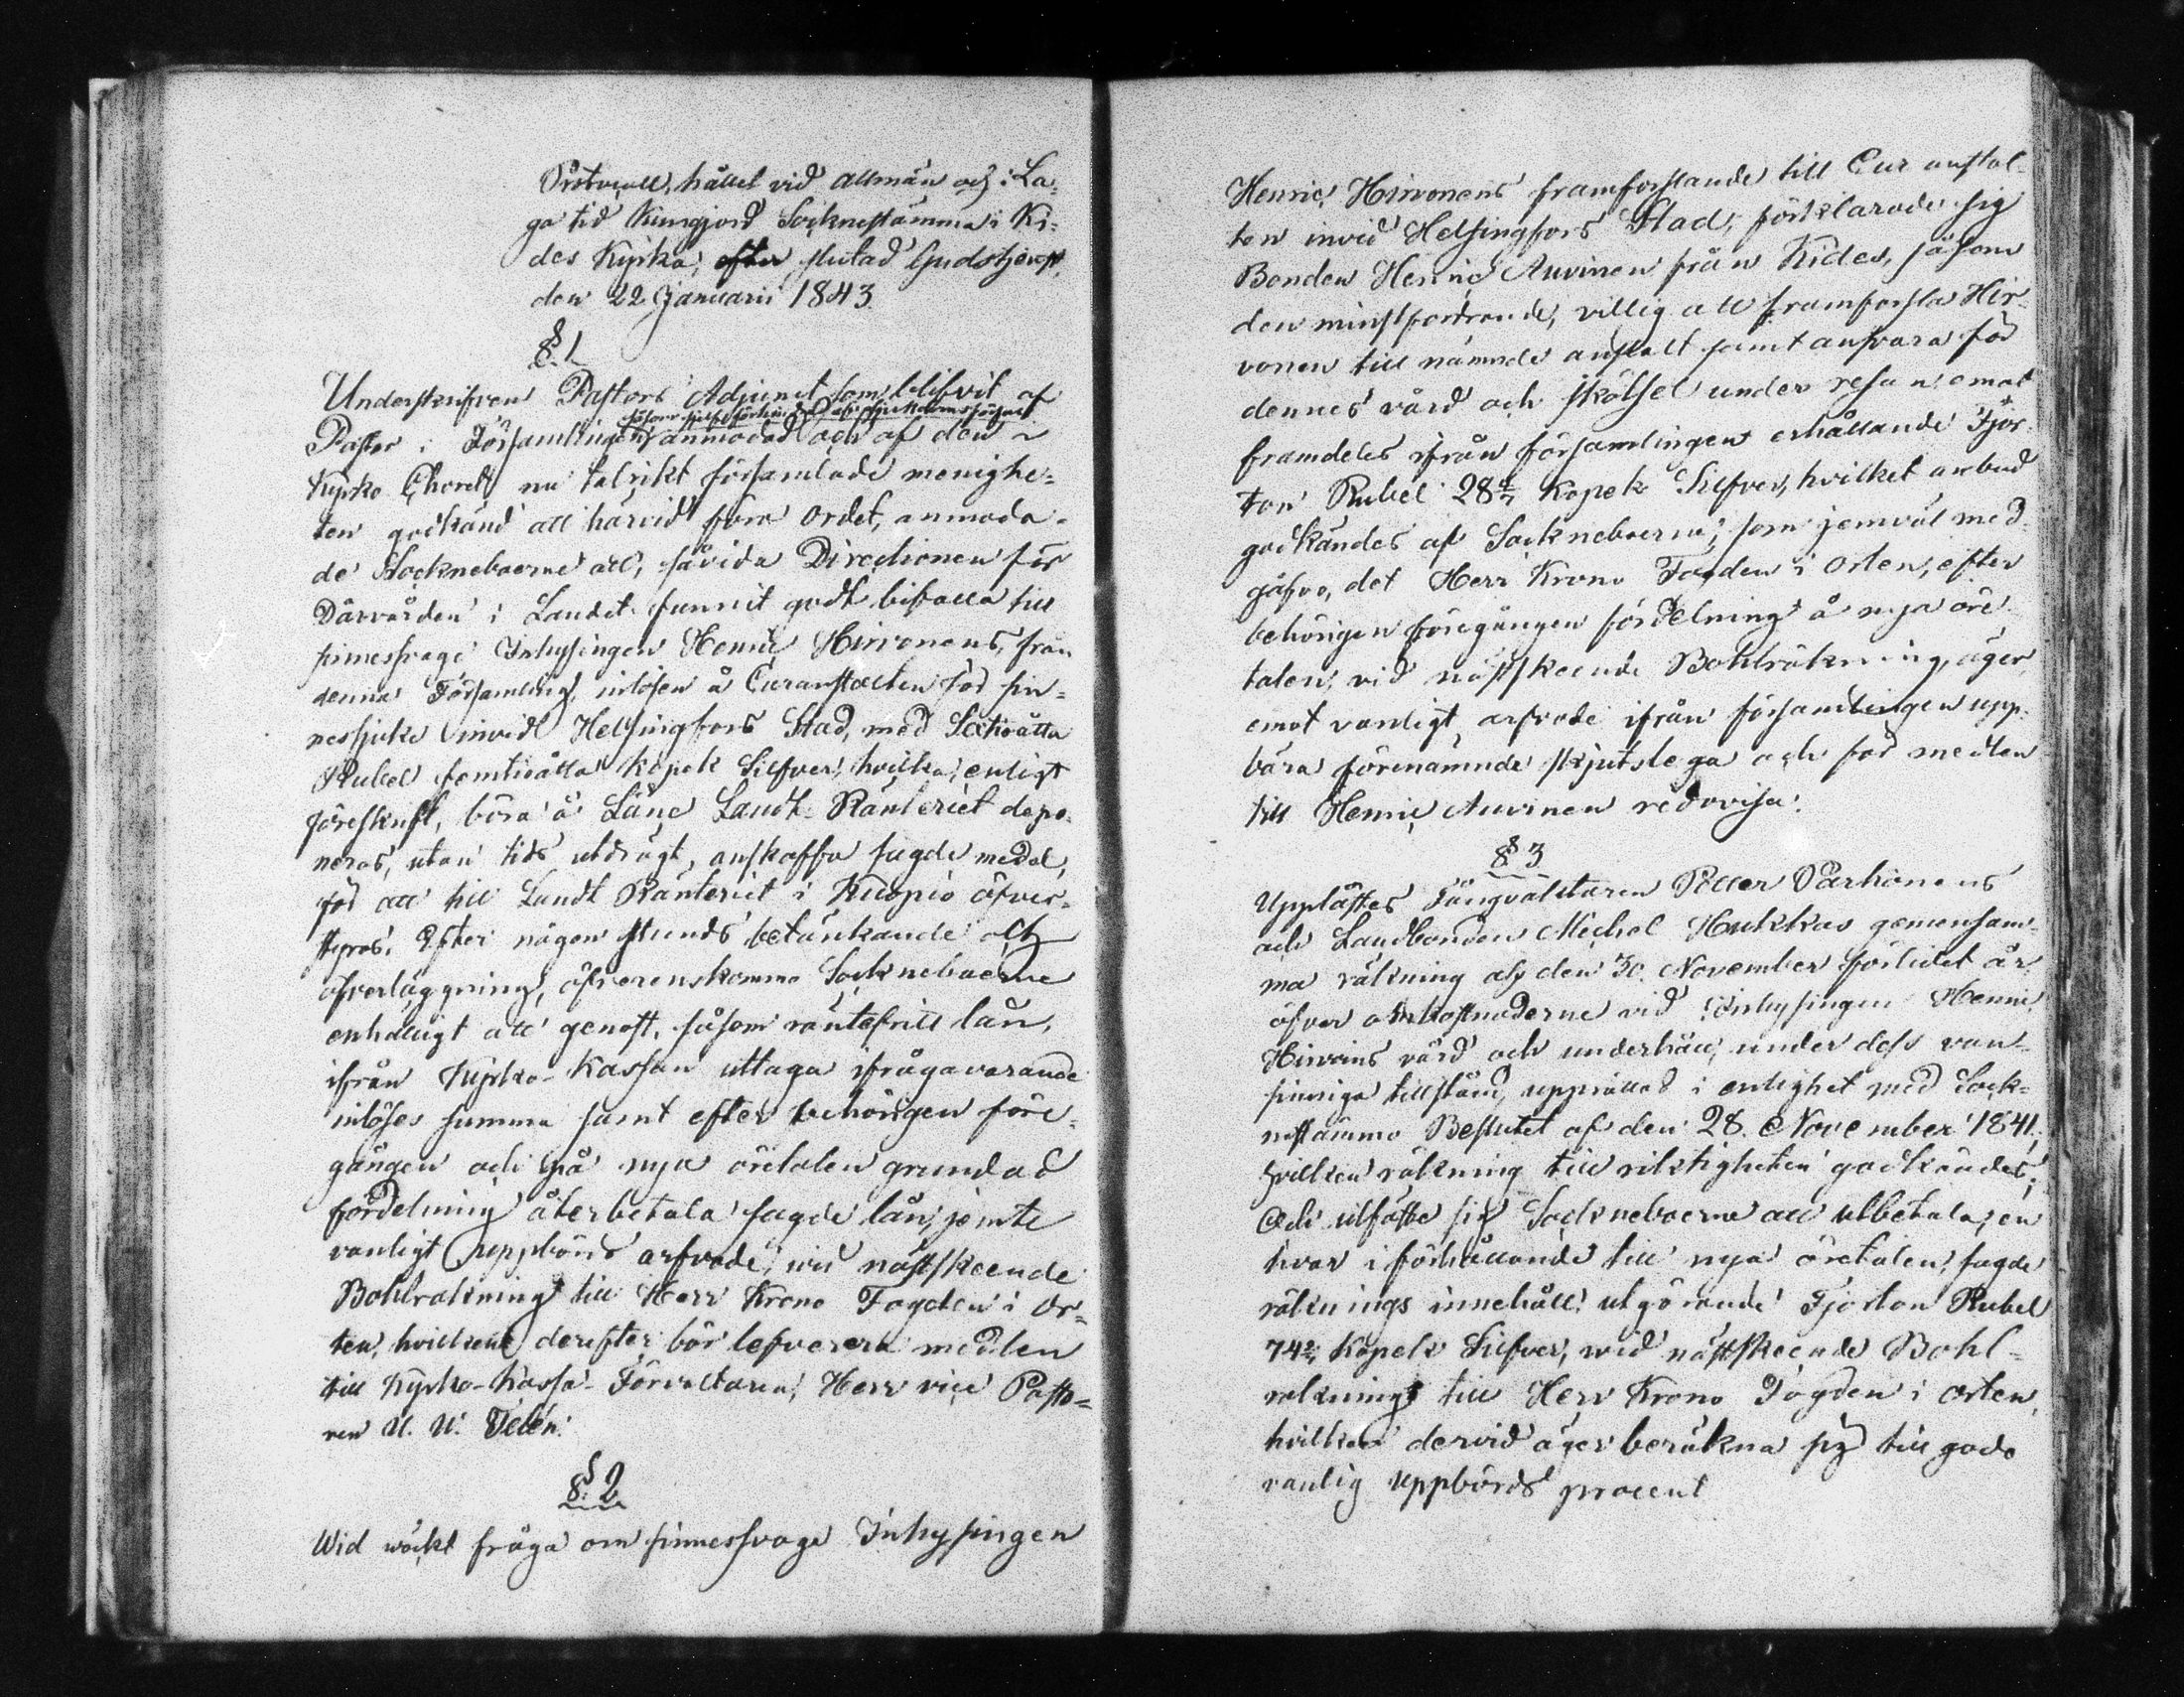 Protocoll, hållet vid allmän och i La-
ga tid kungjord Socknestämma i Ki-
des Kyrka, efter slutad Gudstjenst,
den 22 Januarii 1843.
§ 1
Underskrifven Pastors Adjunct som blifvit af
såsom sjelf förhindrad af sjukdoms
Pastor i Församlingen anmodad och af den i
Kyrko Choret nu talrikt församlade menighe-
ten godkänd att härvid föra ordet, anmoda-
de Sockneboerne att, såvida Directionen för
Dårvården i Landet funnit godt bifalla till
sinnessvage Inhysingen Henric Hirvonens, från
denna Församling, inlösen å Curanstalten för sin-
nessjuke invid Helsingfors Stad, med Sextioåtta
Rubel femtioåtta kopek Silfver, hvilka, enligt
föreskrift, böra å Läne Landt-Ränteriet depo-
neras, utan tids utdrägt, anskaffa sagde medel,
för att till Landt Ränteriet i Kuopio öfver-
styras. Efter någon stunds betänkande och
öfverläggning, öfverenskommo Sockneboerne
enhälligt att genast, såsom räntefritt lån,
ifrån Kyrko-Kassan uttaga ifrågavarande
inlöses summa samt efter behörigen före-
gången och på nya öretalen grundad
fördelning återbetala sagde lån, jemte
vanligt uppbörds arfvode, vid nästskeende
Bohlräkning till Herr Krono Fogden i Or-
ten, hvilken derefter bör lefverera medlen
till Kyrko-Kassa-Förvaltaren, Herr vice Pasto-
ren U. U. Telén.
§ 2
Wid väckt fråga om sinnessvage Inhysingen
Henric Hirvonens framforslande till Cur anstal-
ten invid Helsingfors Stad, förklarade sig
Bonden Henric Auvinen från Kides, såsom
den minstfordrande, villig att framforsla Hir-
vonen till nämnde anstalt samt ansvara för
dennes vård och skötsel under resan emot
framdeles ifrån församlingen erhållande Fjor-
ton Rubel 28 4/7 Kopek Silfver, hvilket anbud
godkändes af Sockneboerne, som jemväl med-
gåfvo, det Herr Krono Fogden i Orten, efter
behörigen föregången fördelning å nya öre
talen, vid nästskeende Bohlräkning, äger
emot vanligt arfvode ifrån församlingen upp-
bära förenämnde skjutslega och för medlen
till Henric Auvinen redovisa.
§ 3
Upplästes Fångvaktaren Petter Parkonens
och Landbonden Michel Hukkas gemensam-
ma räkning af den 30. November förlidet år
öfver omkostnaderne vid Inhysingen Henric
Hirvoins vård och underhåll, under dess van-
sinniga tillstånd, upprättad i enlighet med Sock-
nestämmo Beslutet af den 28. November 1841,
hvilken räkning till riktigheten godkändes;
Och utfäste sig Sockneboerne att utbetala, en
hvar i förhållande till nya öretalen, sagde
räknings innehåll, utgörande Fjorton Rubel
74 2/7 Kopek Silfver, vid nästskeende Bohl-
räkning till Herr Krono Fogden i Orten,
hvilken dervid äger beräkna sig till godo
vanlig uppbörds procent